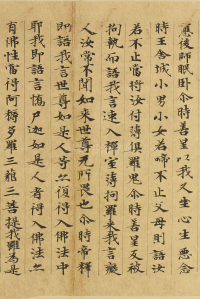 應後師眠卧尒時善星以我久坐心生惡念
時王舍城小男小女若啼不止父母則語汝
若不止當將汝付薄俱羅鬼尒時善星反被
拘執而語我言速入禪室薄拘羅來我言癡
人汝常不聞如來世尊无所畏也尒時帝釋
即語我言世尊如是人等亦復得入佛法中
耶我即語言憍尸迦如是人者得入佛法亦
有佛性當得阿耨多羅三藐三菩提我雖為是